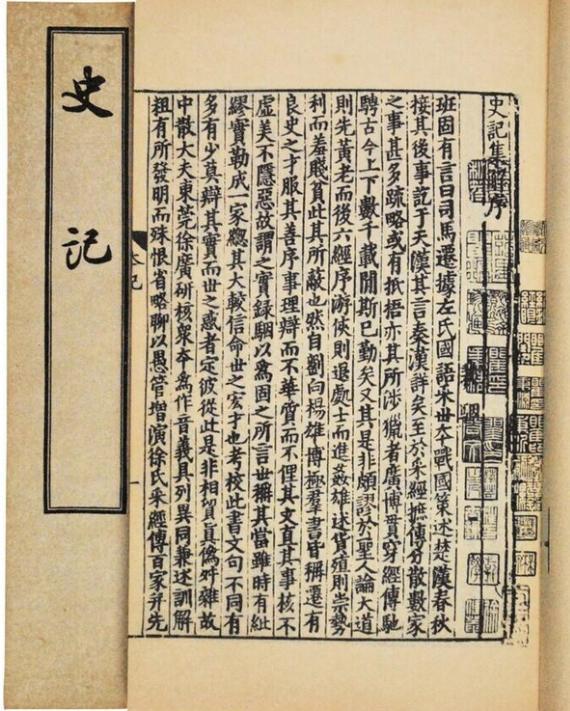 史記集解序
班固有言曰司馬遷據左氏國語采世夲戰國策述楚漢春秋
接其後事訖于天漢其言秦漢詳矣至於采經摭傳分散數家
之事甚多疏略或有抵捂亦其所涉獵者廣博貫穿經傳馳
騁古今上下數千載閒斯已勤矣又其是非頗謬於聖人論大道
則先黃老而後六經序游俠則退處士而進姦雄述貨殖則崇勢
利而羞賤貧此其所蔽也然自劉向楊雄博極羣書皆稱遷有
良史之才服其善序事理辯而不華質而不俚其文直其事核不
虛美不隱惡故謂之實錄駰以爲固之所言世稱其當雖時有紕
繆實勒成一家緫其大較信命世之宏才也考校此書文句不同有
多有少莫辯其實而世之惑者定彼從此是非相貿真偽舛雜故
中散大夫東莞徐廣研核衆夲爲作音義具列異同兼述訓解
粗有所發明而殊恨省略聊以愚管增演徐氏采經傳百家并先
史記